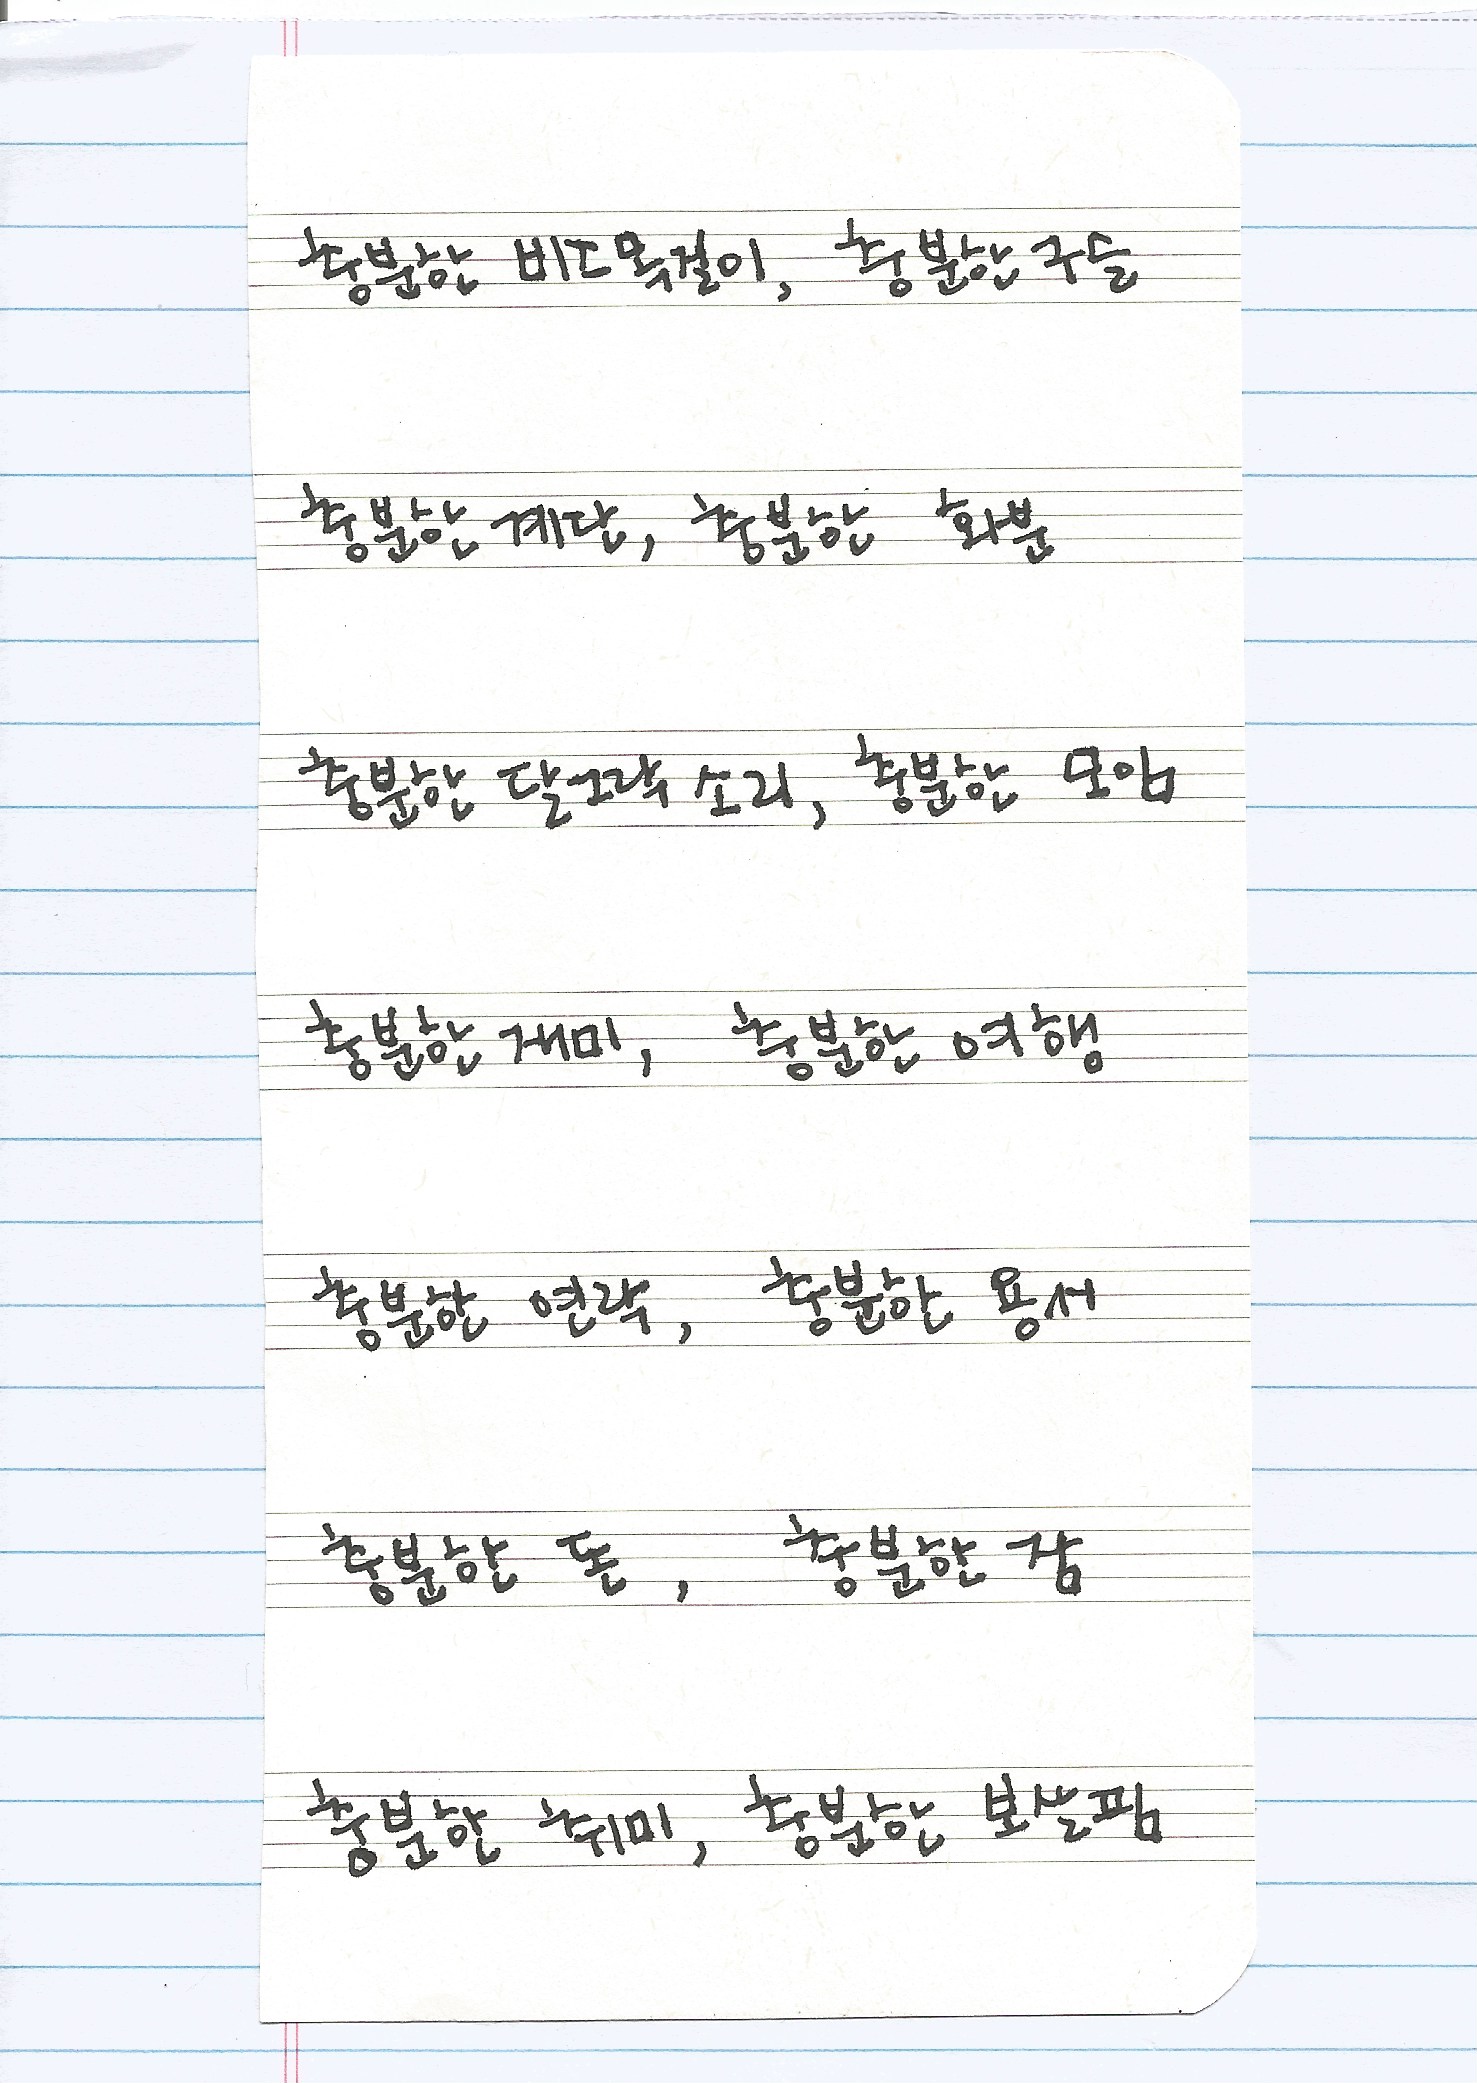 충분한 비즈목걸이, 충분한 구슬
충분한 계단, 충분한 화분
충분한 달그락 소리, 충분한 모임
충분한 재미, 충분한 여행
충분한 연락, 충분한 용서
충분한 돈, 충분한 잠
충분한 취미, 충분한 보살핌